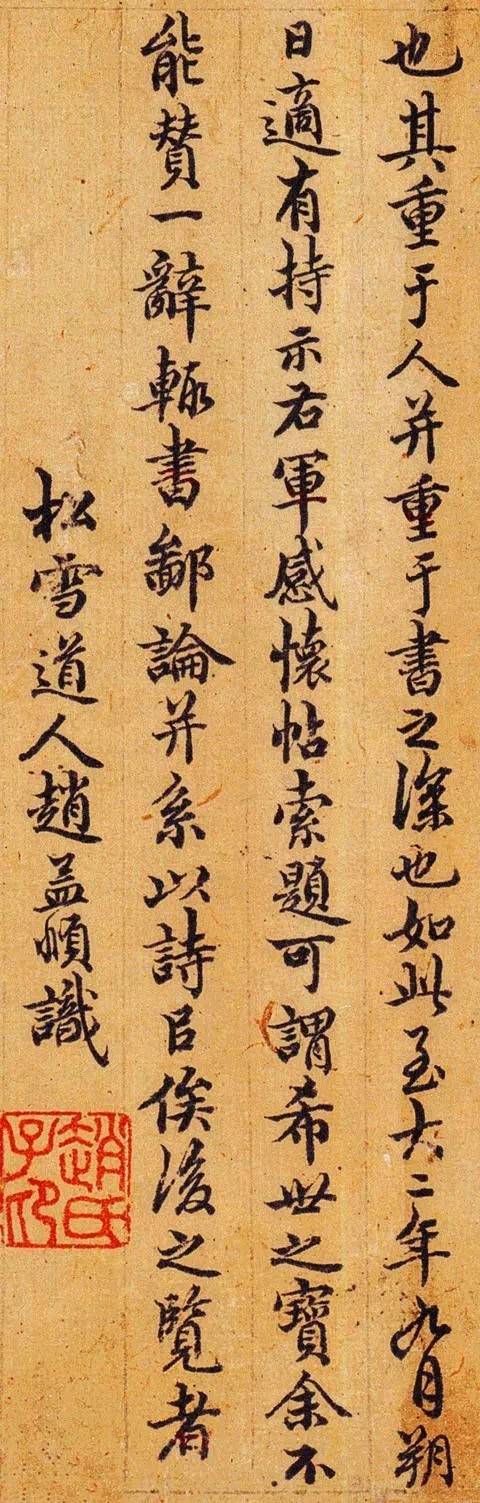 也其重于人并重于書之深也如此至大二年九月朔
日適有持示右軍感懷帖索題可謂希世之寶余不
能贊一辭輒書鄙論并系以詩㠯俟後之覽者
松雪道人趙孟頫識
趙氏子印